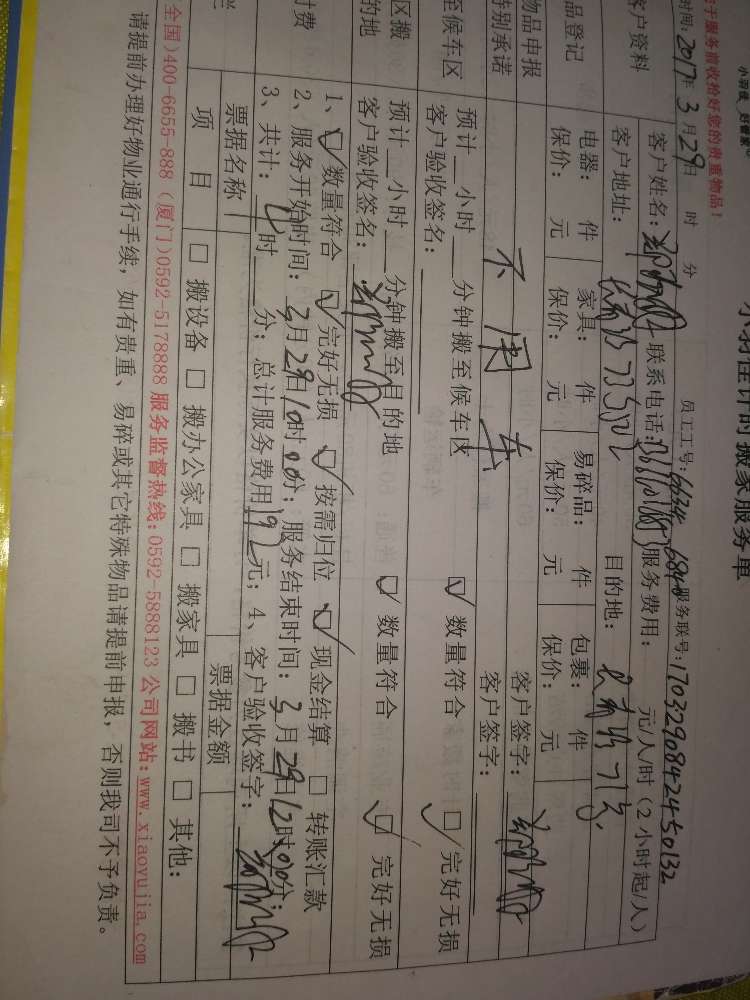 小羽佳 好管家
小羽佳计时搬家服务单
于服务前收拾好您的贵重物品！
员工工号：6634 6840 服务联号：1703290842450132
时间：2017年3月29日 时 分
客户资料
客户姓名： 联系电话： 服务费用： 元/人/时（2小时起/人）
客户地址： 目的地：
品登记
电器： 件 家具： 件 易碎品： 件 包裹： 件
保价： 元 保价： 元 保价： 元 保价： 元
物品申报
特别承诺
不用车
客户签字：
客户签字：
至候车区
预计__小时__分钟搬至候车区
客户验收签名：
☑数量符合 ☑完好无损
区搬
的地
预计__小时__分钟搬至目的地
客户验收签名：
☑数量符合 ☑完好无损
付费
1、☑数量符合 ☑完好无损 ☑按需归位 ☑现金结算 □转账汇款
2、服务开始时间：3月29日10时00分；服务结束时间：3月29日12时00分；
3、共计：4时__分；总计服务费用192元；4、客户验收签字：
票据名称 票据金额
项目 □搬设备 □搬办公家具 □搬家具 □搬书 □其他：
全国)400-6655-888（厦门)0592-5178888服务监督热线:0592-5888123公司网站:www.xiaoyujia.com
请提前办理好物业通行手续，如有贵重、易碎或其它特殊物品请提前申报，否则我司不予负责。